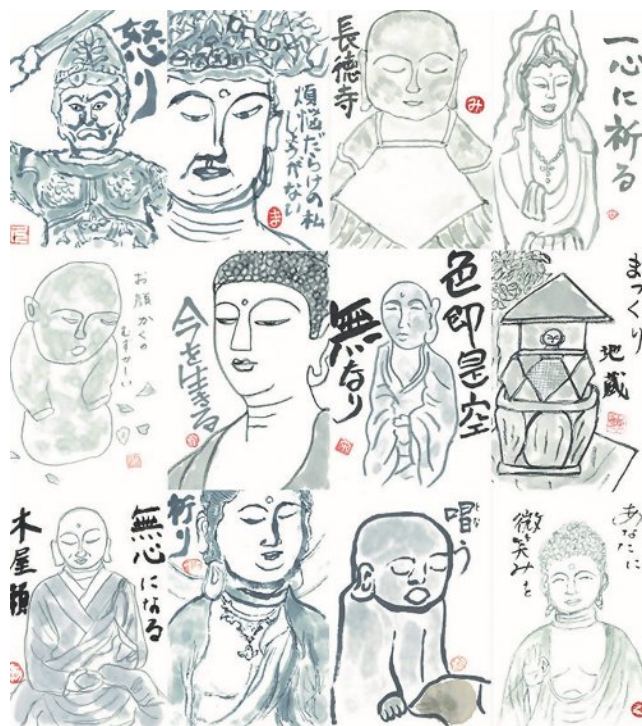 怒り
煩悩だらけの私
しょうがない
ま
長徳寺
み
一心に祈る
お顔かくの
むずかーしい
今を生きる
色即是空
無なり
地蔵
無心になる
木屋瀬
祈り
唱う
あなたに
微笑みを